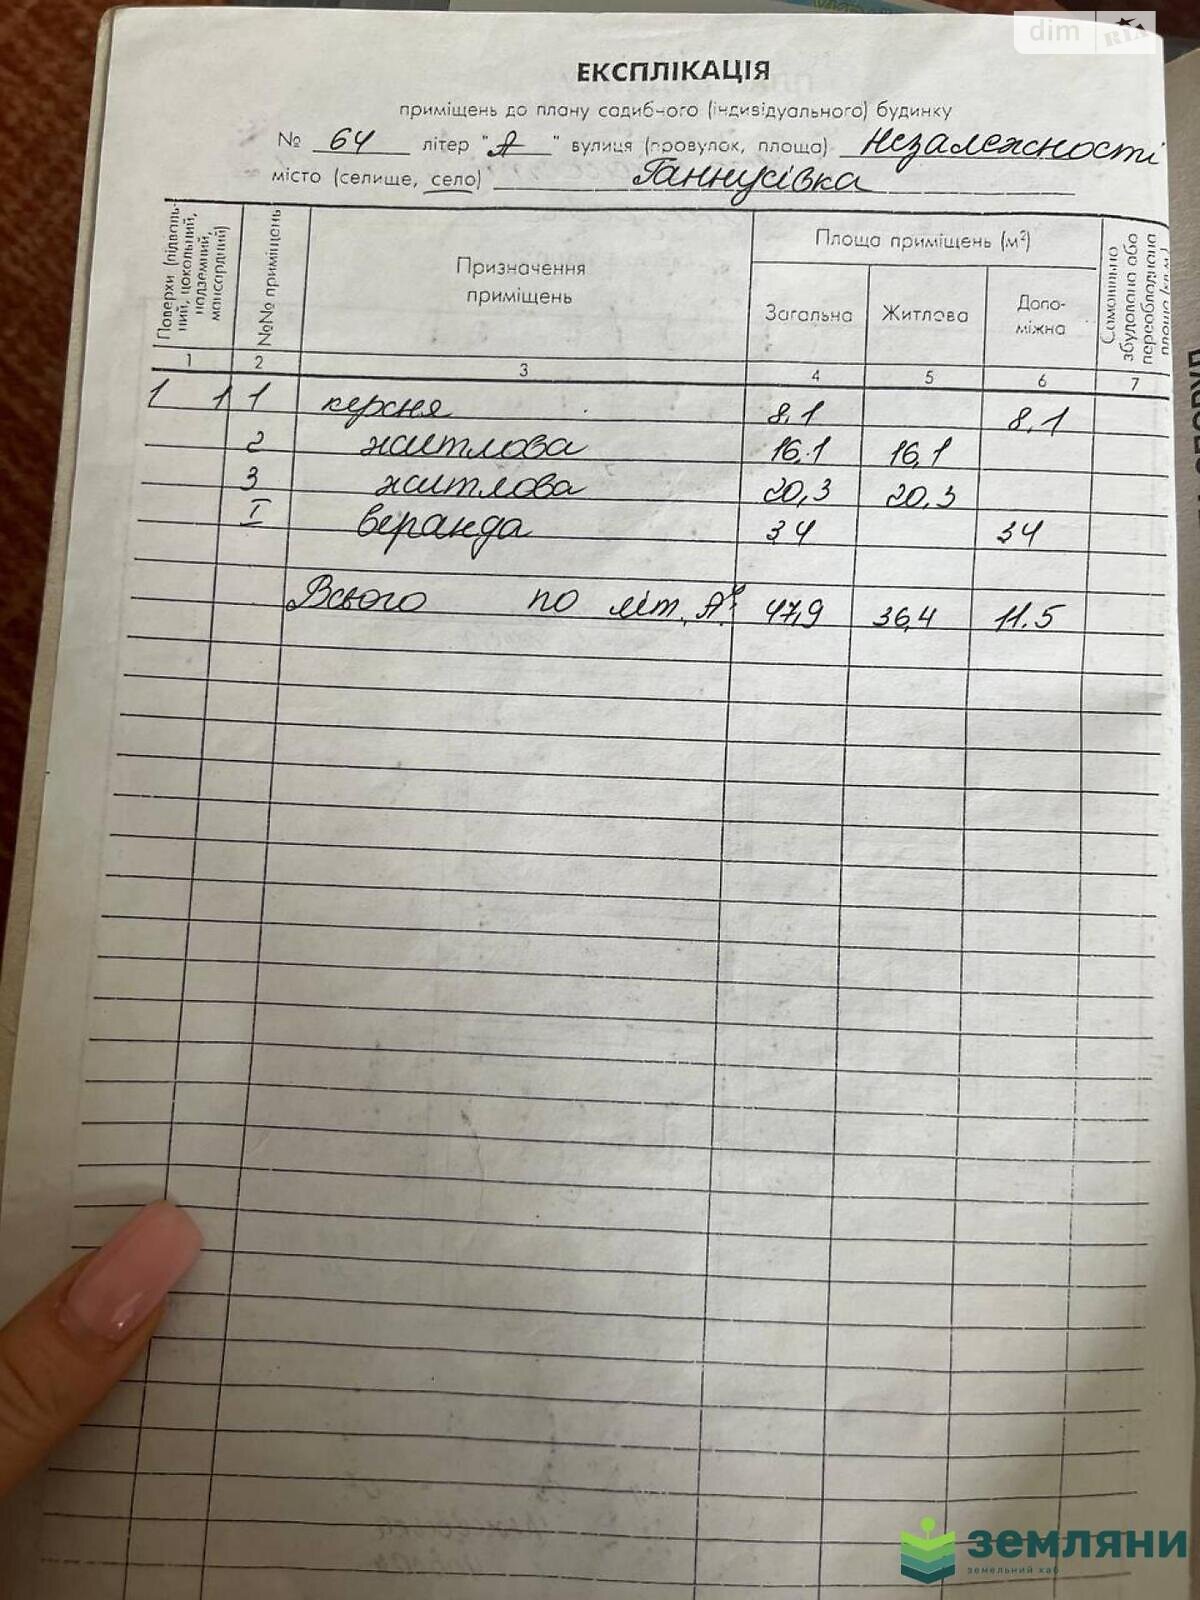 dim RIA
ЕКСПЛІКАЦІЯ
приміщень до плану садибного (індивідуального) будинку
№ 64 літер "А" вулиця (провулок, площа) Незалежності
місто (селище, село) Ганнусівка
Поверхи (підвальний, цокольний, надземний, мансардний)
№№ приміщень
Призначення приміщень
Площа приміщень (м²)
Загальна Житлова Допоміжна
Самовільно збудована або переобладнана площа (кв.м.)
1 2 3 4 5 6 7
1 1 1 керсня 8,1 8,1
2 житлова 16,1 16,1
3 житлова 20,3 20,3
I веранда 34 34
Всього по літ. А: 47,9 36,4 11.5
ЗЕМЛЯНИ
земельний хаб